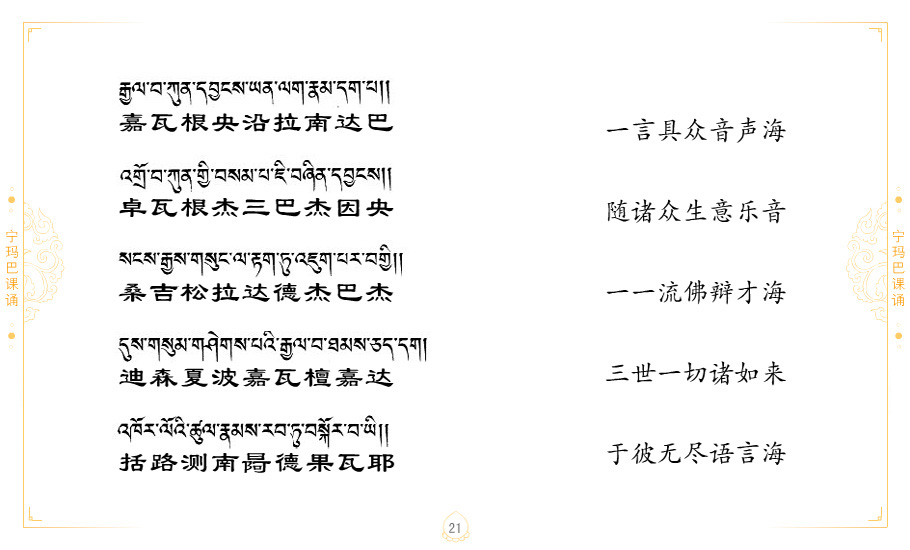 རྒྱལ་བ་ཀུན་དབྱངས་ཡན་ལག་རྣམ་དག་པ།།
嘉瓦根央沿拉南达巴
一言具众音声海
འགྲོ་བ་ཀུན་གྱི་བསམ་པ་ཇི་བཞིན་དབྱངས།།
卓瓦根杰三巴杰因央
随诸众生意乐音
སངས་རྒྱས་གསུང་ལ་རྟག་ཏུ་འཇུག་པར་བགྱི།།
桑吉松拉达德杰巴杰
一一流佛辩才海
དུས་གསུམ་གཤེགས་པའི་རྒྱལ་བ་ཐམས་ཅད་དག།
迪森夏波嘉瓦檀嘉达
三世一切诸如来
འཁོར་ལོའི་ཚུལ་རྣམས་རབ་ཏུ་བསྐོར་བ་ཡི།།
括路测南德果瓦耶
于彼无尽语言海
宁玛巴课诵
宁玛巴课诵
21